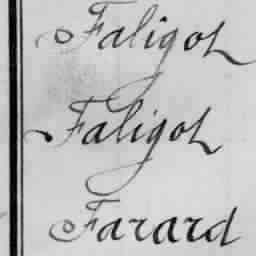 Faligot
Faligot
Farard